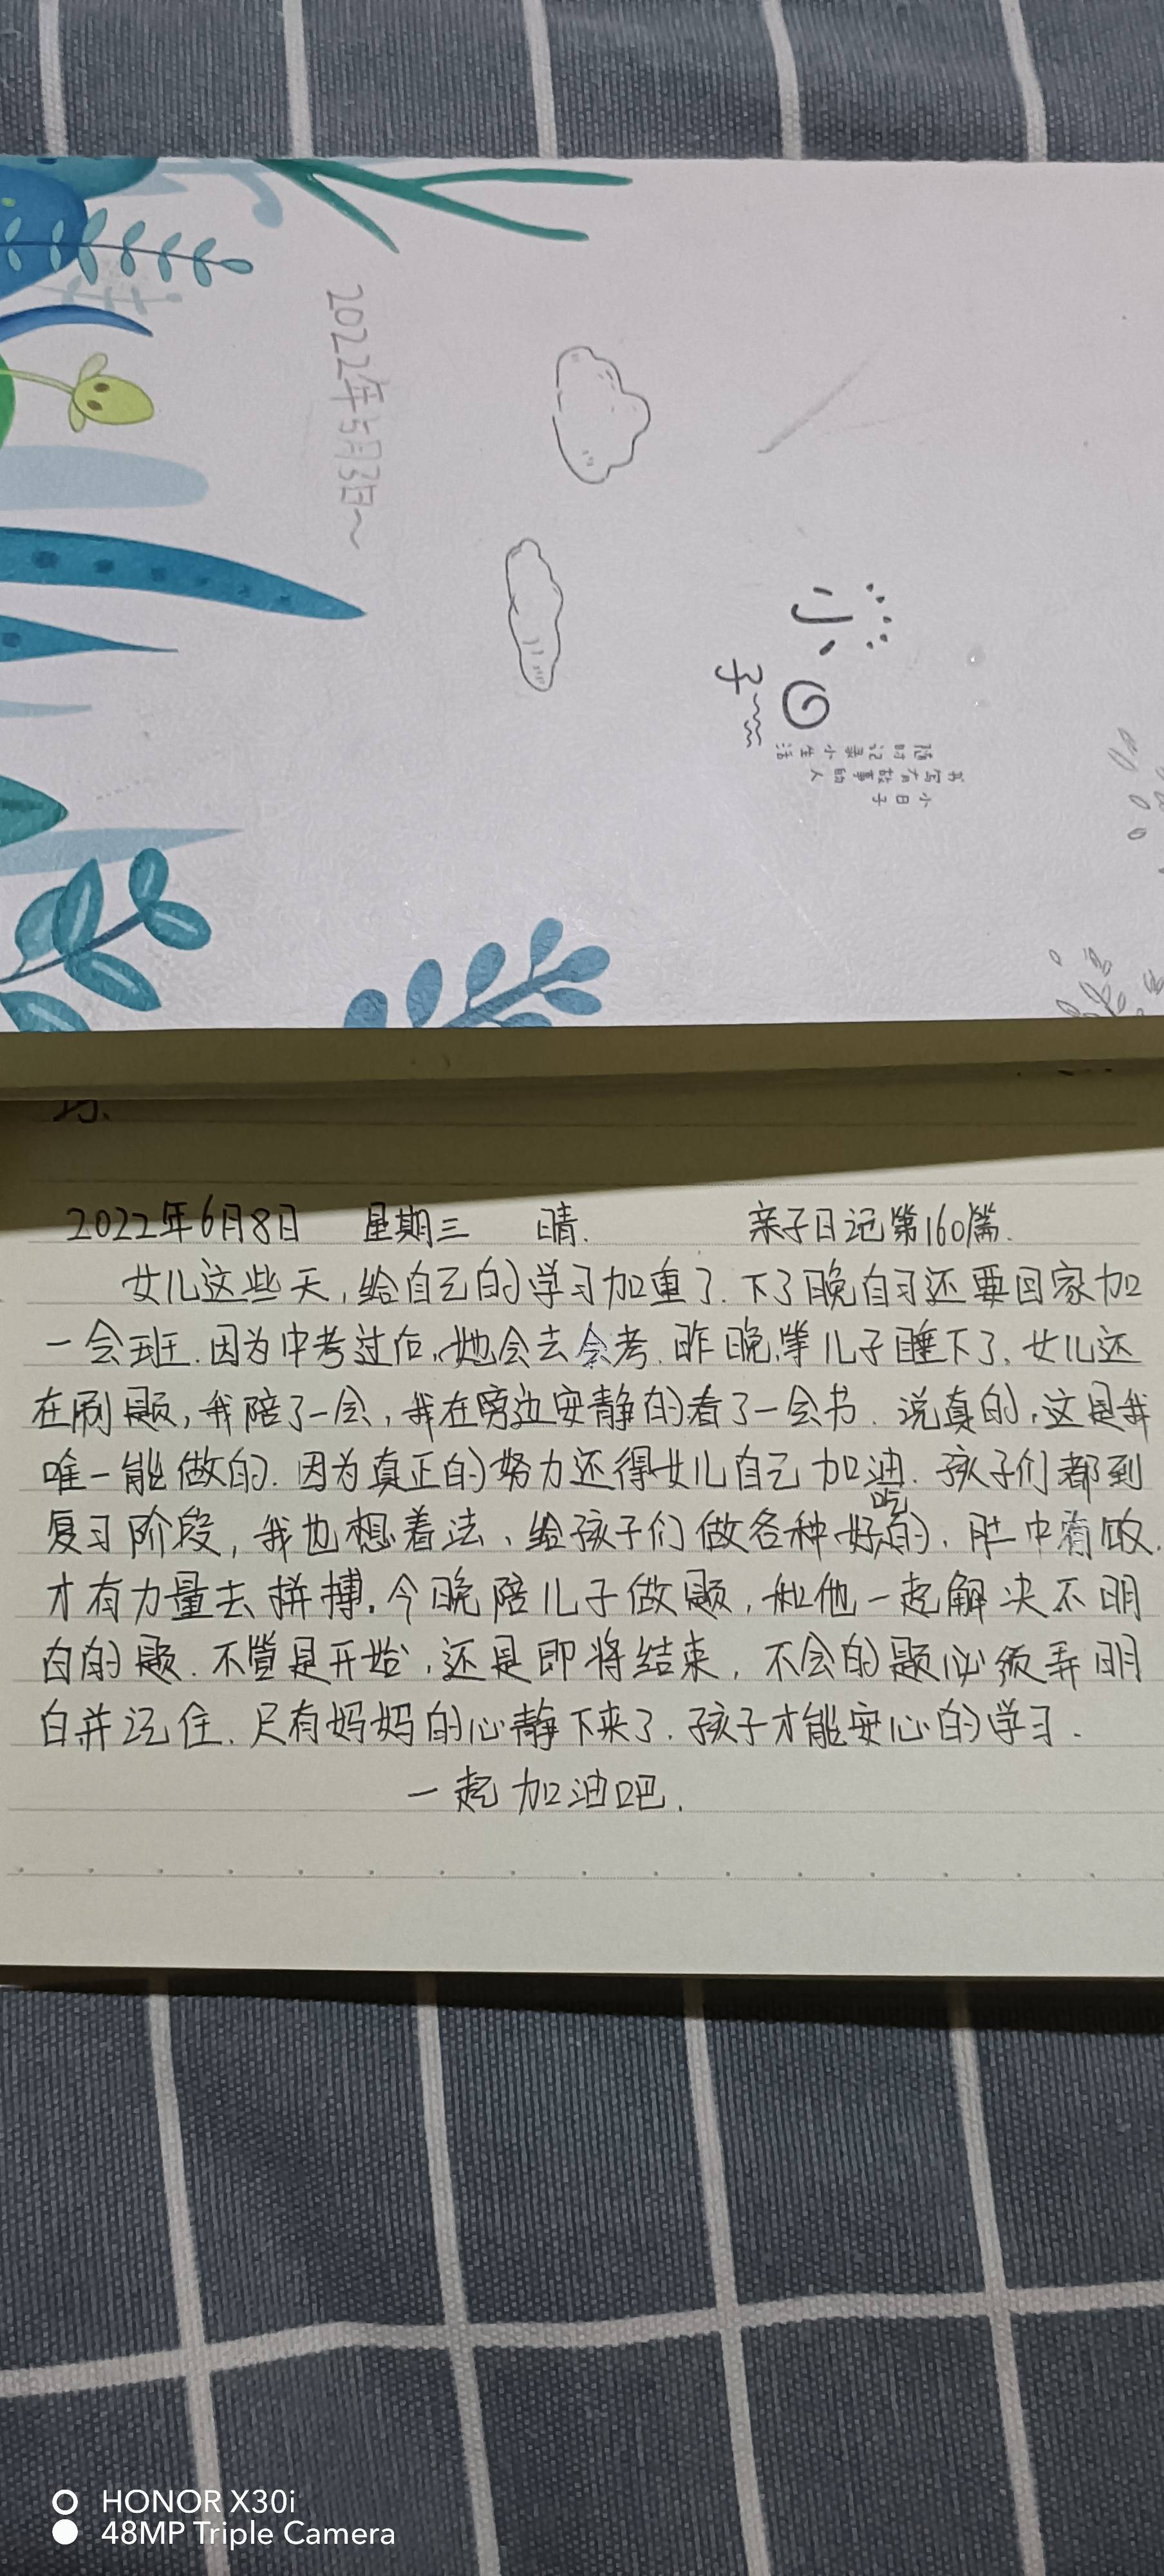 2022年5月3日~
小日子
随时记录小生活
书写有故事的人
小日子
2022年6月8日 星期三 晴. 亲子日记第160篇.
女儿这些天,给自己的学习加重了.下了晚自习还要回家加
一会班.因为中考过后,她会去会考.昨晚,等儿子睡下了、女儿还
在刷题,我陪了一会,我在旁边安静的看了一会书.说真的,这是我
唯一能做的.因为真正的努力还得女儿自己加油.孩子们都到
复习阶段,我也想着法、给孩子们做各种好吃的、肚中有饭.
才有力量去拼搏.今晚陪儿子做题,和他一起解决不明
白的题.不管是开始,还是即将结束,不会的题必须弄明
白并记住.只有妈妈的心静下来了.孩子才能安心的学习.
一起加油吧.
HONOR X30i
48MP Triple Camera